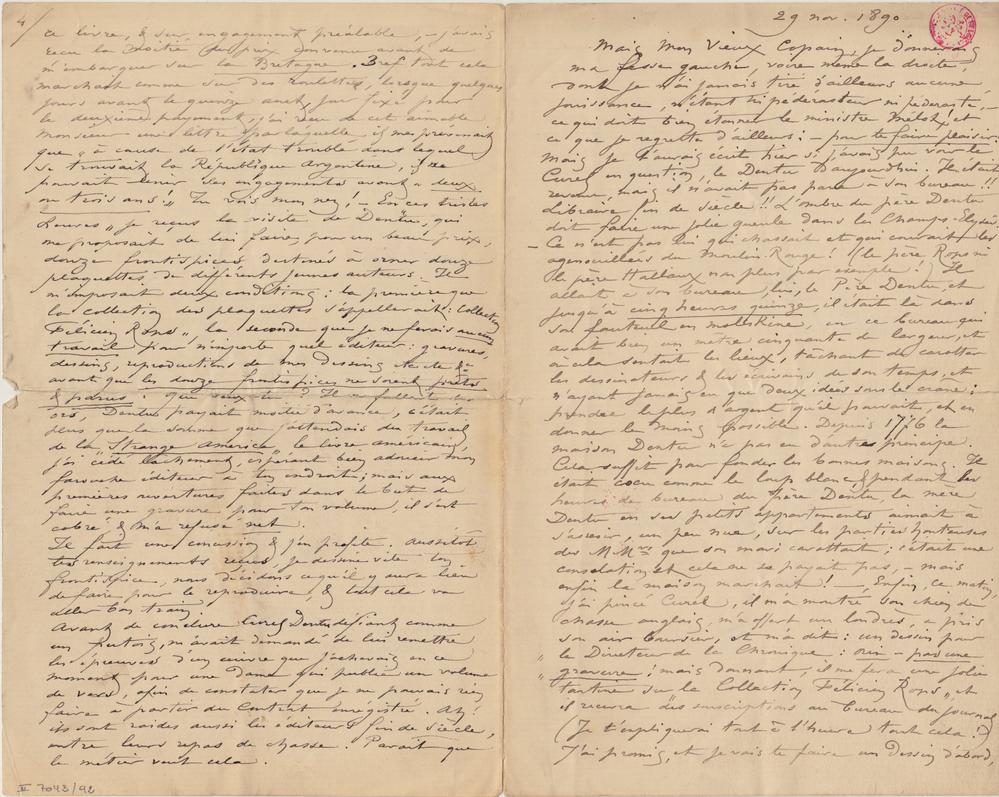 4/
ce livre, & sur engagement préalable j'avais
reçu la moitié du prix convenu avant de
m'embarquer sur la Bretagne. Bref tout cela
marchait comme sur des roulettes, lorsque quelques
jours avant le quinze août, jour fixé pour
le deuxième payement, j'ai reçu de cet aimable
Monsieur une lettre par laquelle il me prévenait
que „ à cause de l'état troublé dans lequel
se trouvait la République Argentine, il ne
pouvait tenir ses engagements avant „ deux
ou trois ans. „ Tu vois mon nez, – En ces tristes
heures „ je reçus la visite de Dentu, qui
me proposait de lui faire, pour un beau prix,
douze frontispices destinés à orner douze
plaquettes de différents jeunes auteurs. Il
m'imposait deux conditions : la première que
la collection des plaquettes s'appellerait : Collection
Félicien Rops „ la seconde que je ne ferais aucun
travail pour n'importe quel éditeur : gravures,
dessins, reproductions de mes dessins etc etc &c
avant que les douze frontispices ne soient prêts
& parus. Que veux-tu ? Il ne fallait
Dentu payait moitié d'avance, c'était
plus que la somme que j'attendais du travail
de la „ Strange America „ le livre américain,
j'ai cédé lâchement, espérant bien adoucir mon
farouche éditeur à ton endroit ; mais aux
premières ouvertures faites dans le but de
faire une gravure pour ton volume, il s'est
cabré & m'a refusé net.
Il fait une concession & j'en profite. Aussitôt
tes renseignements reçus, je dessine vite ton
frontispice, nous décidons ce qu'il y aura lieu
de faire pour le reproduire, & tout cela va
aller bon train.
Avant de conclure Curel Dentu défiant comme
un putois, m'avait demandé de lui remettre
les épreuves d'un cuivre que j'achevais en ce
moment pour une Dame qui publie un volume
de vers, afin de constater que je ne pouvais rien
faire à partir du Contrat enregistré. Ah !
ils sont roides aussi les éditeurs fin de siècle,
entre leurs repas de chasse. Paraît que
le métier veut cela.
II 7043/92
29 nov. 1890
Mais mon Vieux Copain, je donnerais
ma fesse gauche, voire même la droite,
dont je n'ai jamais tiré d'ailleurs aucune
jouissance, n'étant ni pédérasteur ni pédérasté, –
ce qui doit bien étonner le ministre Mélot, et
ce que je regrette d'ailleurs : – pour te faire plaisir.
Mais je t'aurais écrit hier si j'avais pu voir le
Curel en question, le Dentu d'aujourdhui. Il était
revenu, mais il n'avait pas paru à son bureau !!
Libraire fin de siècle !! L'ombre du père Dentu
doit faire une jolie gueule dans les Champs-Elysées.
– Ce n'est pas lui qui chassait et qui courait les
agenouillées du Moulin-Rouge ! (le père Rops ni
le père Hallaux non plus par exemple !) Il
allait à son bureau, lui, le Père Dentu, et
jusqu'à cinq heures quinze, il était là dans
son fauteuil en moleskine, en ce bureau qui
avait bien un mètre cinquante de largeur, et
à cela sentait les lieux, tâchant de carotter
les dessinateurs & les écrivains de son temps, et
n'ayant jamais eu que deux idées sous le crâne :
prendre le plus d'argent qu'il pouvait, et en
donner le moins possible. Depuis 1776 la
maison Dentu n'a pas eu d'autres principe.
Cela suffit pour fonder les bonnes maisons. Il
était cocu comme le loup blanc, & pendant les
heures de bureau du Père Dentu, la mère
Dentu en ses petits appartements aimait à
s'asseoir, un peu nue, sur les parties honteuses
des MMrs que son mari carottait ; c'était une
consolation et cela ne se payait pas, – mais
enfin la maison marchait ! – Enfin, ce matin
j'ai pincé Curel, il m'a montré son chien de
chasse anglais, m'a offert un londrès, a pris
son air boursier, et m'a dit : un dessin pour
le Directeur de la Chronique : oui – pas une
„ gravure ! mais donnant, il me fera une jolie
„ tartine sur la „ Collection Félicien Rops „ et
il recevra des suscriptions au bureau du journal
(Je t'expliquerai tout à l'heure tout cela !)
J'ai promis, et je vais te faire un Dessin d'abord,